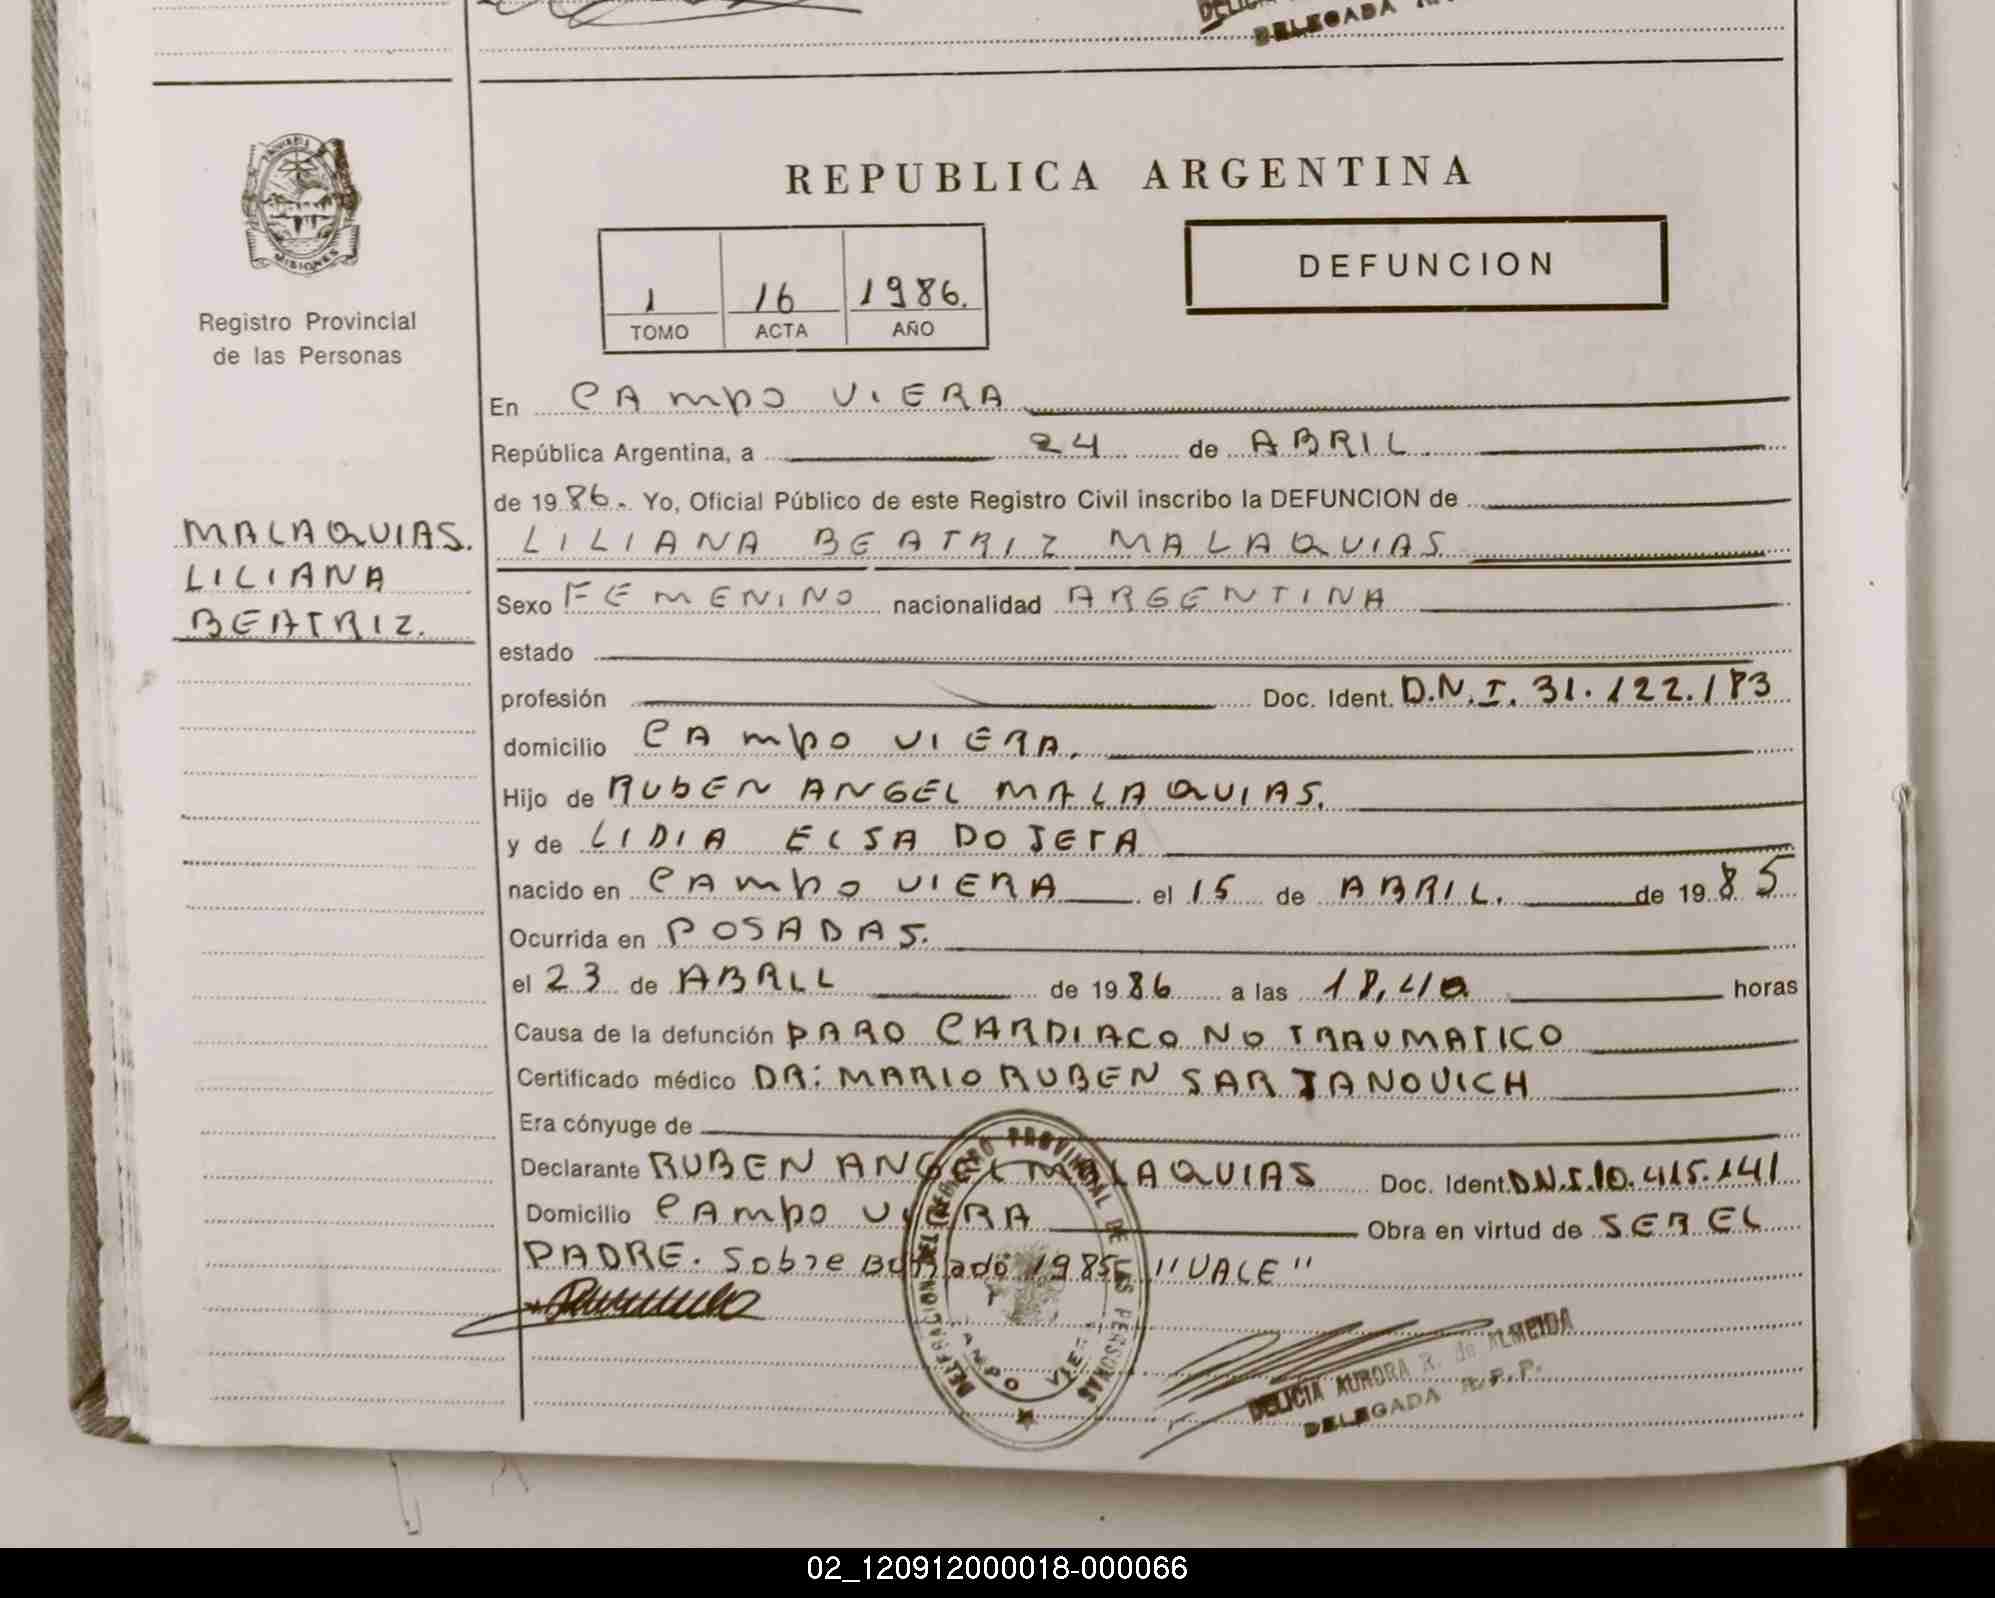 DELEGADA
PROVINCIA DE
MISIONES
Registro Provincial
de las Personas
MALAQUIAS.
LILIANA
BEATRIZ.
REPUBLICA ARGENTINA
1 16 1986.
TOMO ACTA AÑO
DEFUNCION
En CAMPO VIERA
República Argentina, a 24 de ABRIL
de 1986. Yo, Oficial Público de este Registro Civil inscribo la DEFUNCION de
LILIANA BEATRIZ MALAQUIAS
Sexo FEMENINO nacionalidad ARGENTINA
estado
profesión Doc. Ident. D.N.I. 31.122.183
domicilio CAMPO VIERA.
Hijo de RUBEN ANGEL MALAQUIAS.
y de LIDIA ELSA DOJETA
nacido en CAMPO VIERA el 15 de ABRIL. de 1985
Ocurrida en POSADAS.
el 23 de ABRIL de 1986 a las 18,40 horas
Causa de la defunción PARO CARDIACO NO TRAUMATICO
Certificado médico DR: MARIO RUBEN SARJANOVICH
Era cónyuge de
Declarante RUBEN ANGEL MALAQUIAS Doc. Ident. D.N.I. 10.415.141
Domicilio CAMPO VIERA Obra en virtud de SER EL
PADRE. Sobre Borrado 1985 "VALE"
DELEGACION DEL REGISTRO PROVINCIAL DE LAS PERSONAS
CAMPO VIERA
DELICIA AURORA R. de ALMEIDA
DELEGADA R.P.P.
02_120912000018-000066